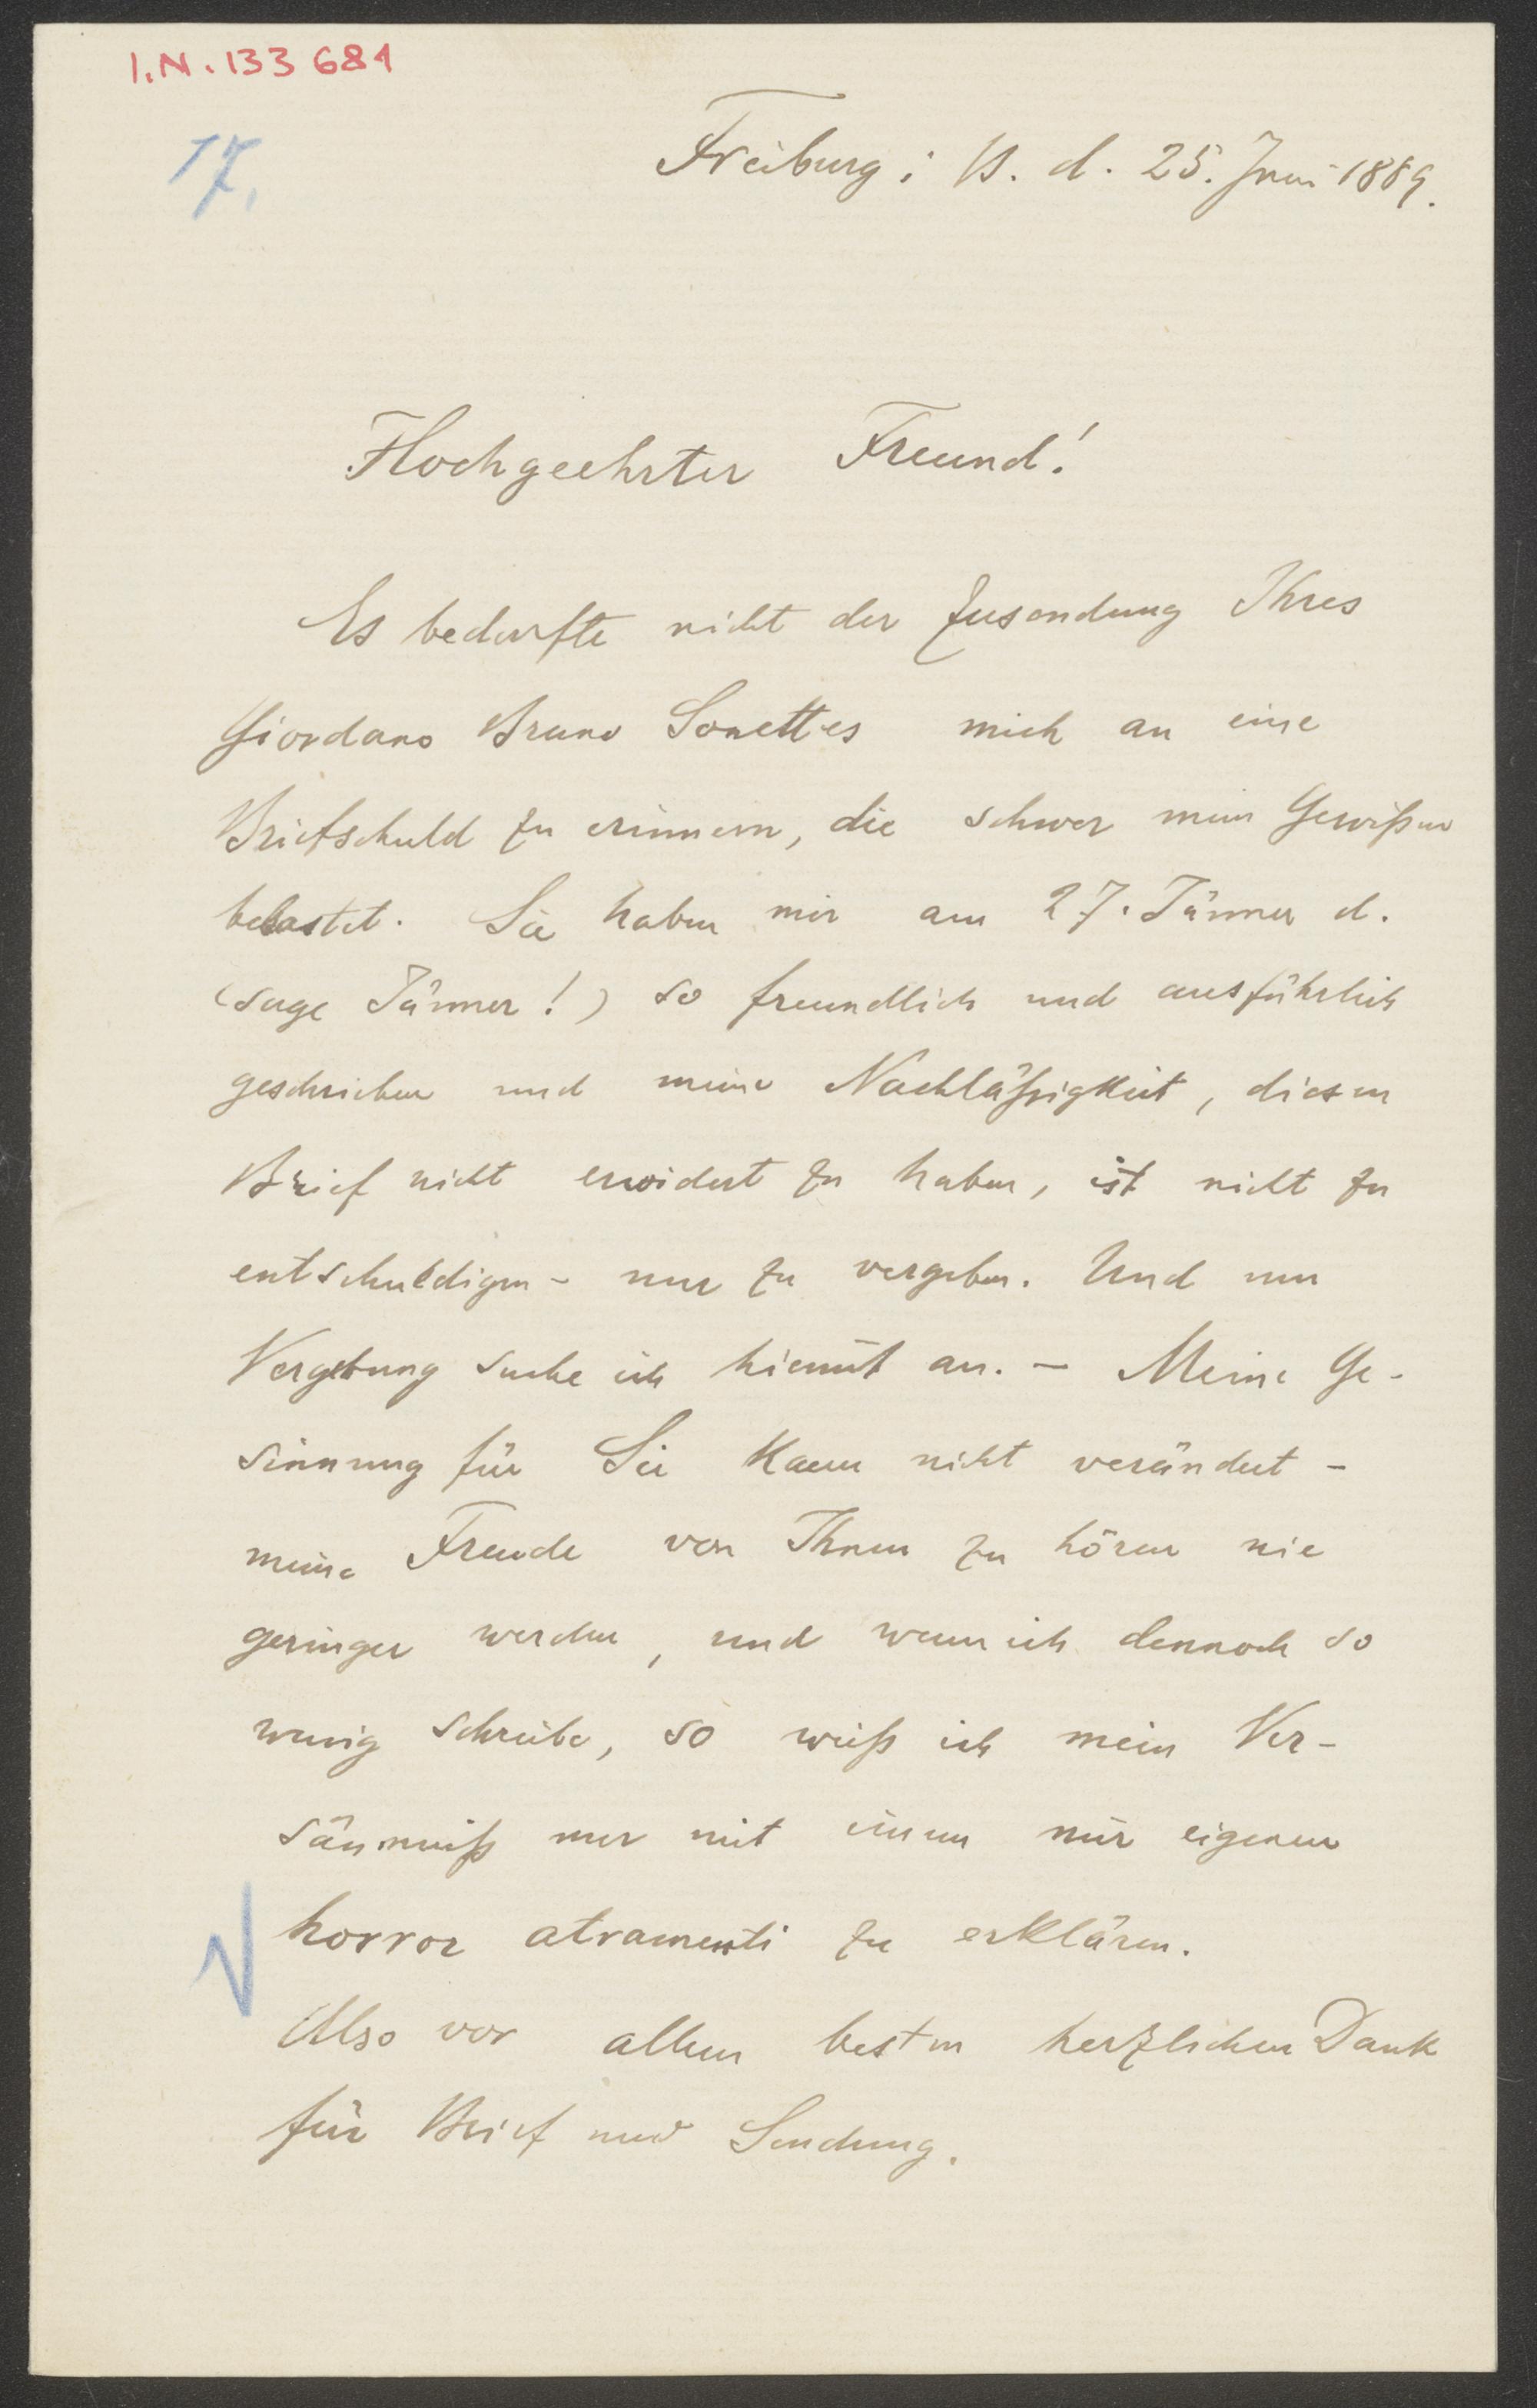 I.N. 133 681
17.
Freiburg i B. d. 25. Juni 1889.
Hochgeehrter Freund!
Es bedurfte nicht der Zusendung Ihres
Giordano Bruno Sonettes mich an eine
Briefschuld zu erinnern, die schwer mein Gewißen
belastet. Sie haben mir am 27. Jänner d.
(sage Jänner!) so freundlich und ausführlich
geschrieben und meine Nachläßigkeit, diesen
Brief nicht erwidert zu haben, ist nicht zu
entschuldigen - nur zu vergeben. Und um
Vergebung suche ich hiemit an. - Meine Ge-
sinnung für Sie kann nicht verändert -
meine Freude von Ihnen zu hören nie
geringer werden, und wenn ich dennoch so
wenig schreibe, so weiß ich mein Ver-
säumniß nur mit einem mir eigenen
horror atramenti zu erklären.
Also vor allem besten herzlichen Dank
für Brief und Sendung.